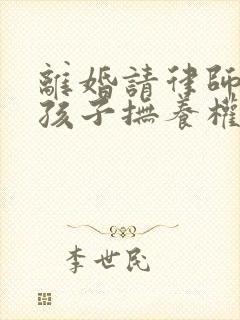 離婚請律師
孩子撫養權
李世民